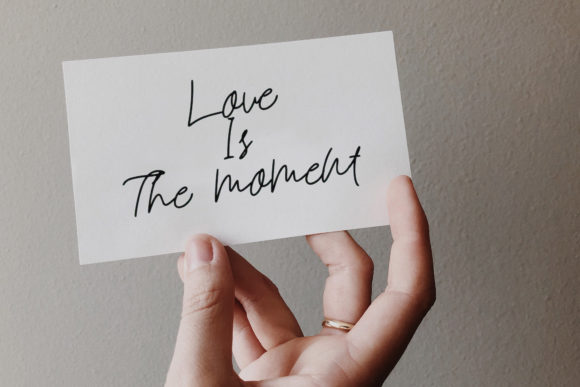 Love
Is
The moment